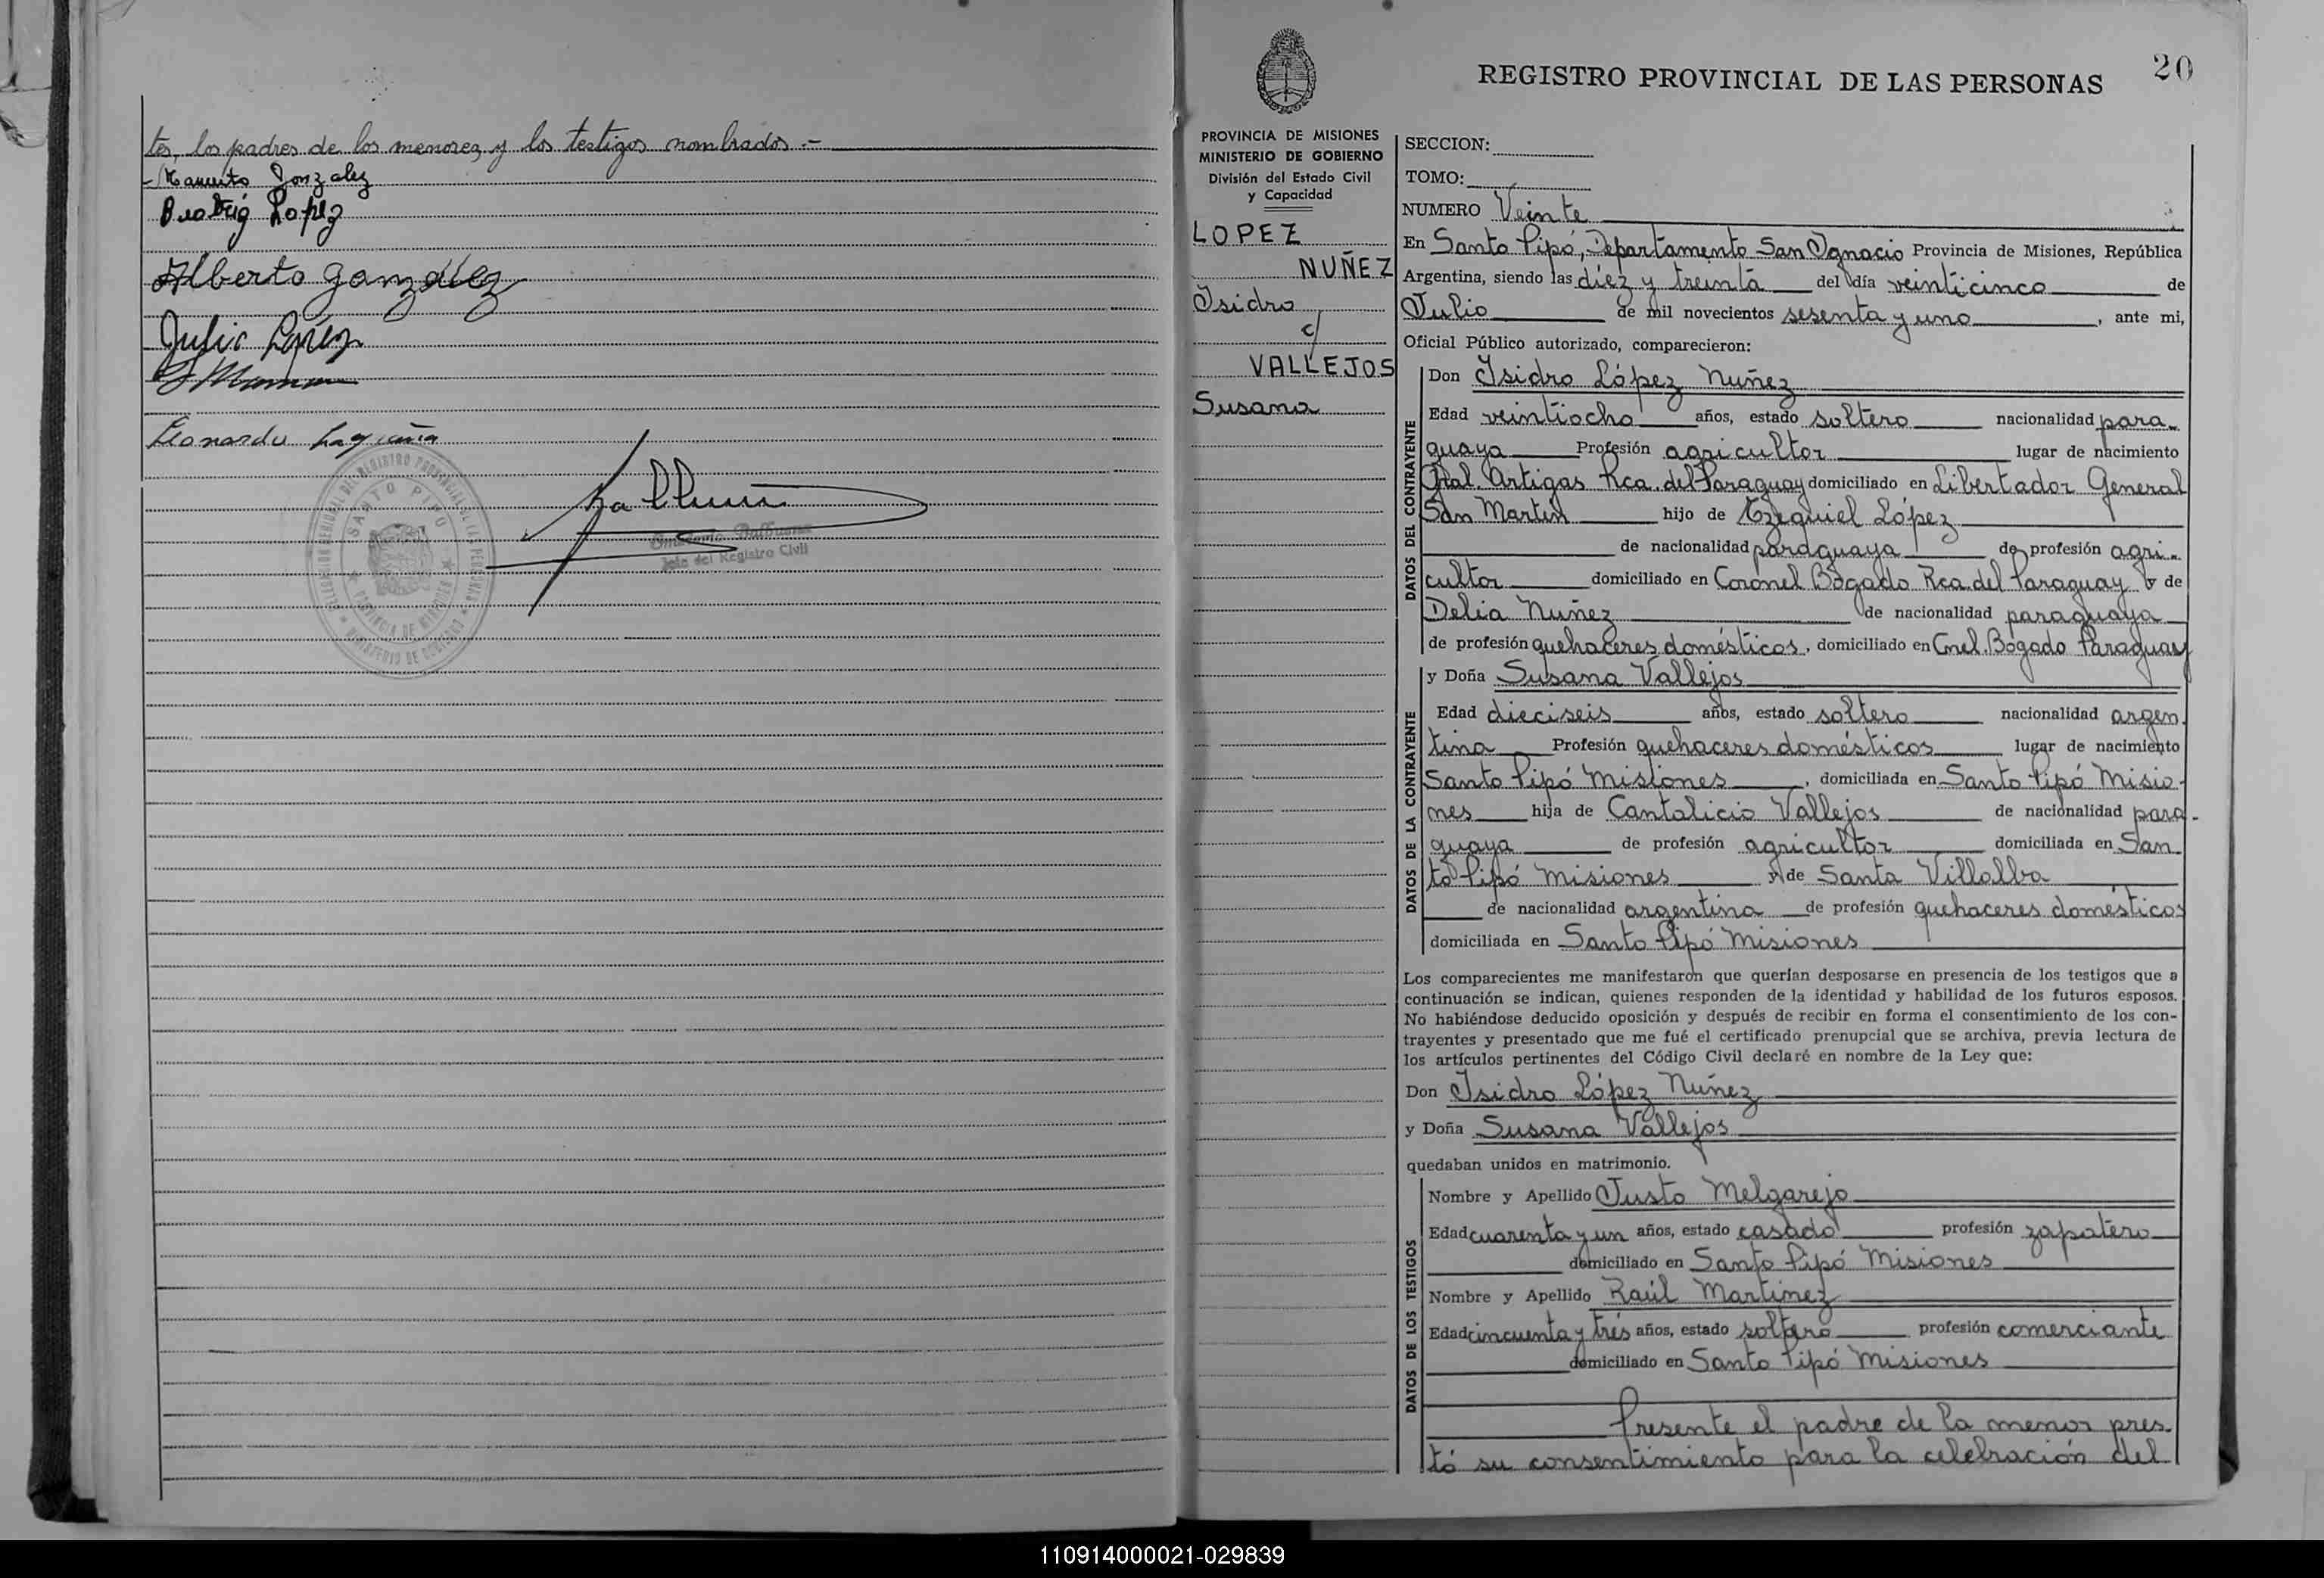 tes, los padres de los menores y los testigos nombrados.-
Gonzalez
Lopez
Alberto Gonzalez
Julio López
Leonardo
DELEGACION REGIONAL DEL REGISTRO PROVINCIAL DE LAS PERSONAS
SANTO PIPO
PROVINCIA DE MISIONES
MINISTERIO DE GOBIERNO
Balbuena
Jefe del Registro Civil
20
REGISTRO PROVINCIAL DE LAS PERSONAS
PROVINCIA DE MISIONES
MINISTERIO DE GOBIERNO
División del Estado Civil
y Capacidad
LOPEZ
NUÑEZ
Isidro
c/
VALLEJOS
Susana
SECCION:
TOMO:
NUMERO Veinte
En Santo Pipó, Departamento San Ignacio Provincia de Misiones, República
Argentina, siendo las diéz y treinta del día veinticinco de
Julio de mil novecientos sesenta y uno, ante mi,
Oficial Público autorizado, comparecieron:
DATOS DEL CONTRAYENTE
Don Isidro López Nuñez
Edad veintiocho años, estado soltero nacionalidad para-
guaya Profesión agricultor lugar de nacimiento
Gral. Artigas Rca. del Paraguay domiciliado en Libertador General
San Martín hijo de Ezequiel López
de nacionalidad paraguaya de profesión agri-
cultor domiciliado en Coronel Bogado Rca. del Paraguay y de
Delia Nuñez de nacionalidad paraguaya
de profesión quehaceres domésticos, domiciliado en Cnel. Bogado Paraguay
DATOS DE LA CONTRAYENTE
y Doña Susana Vallejos
Edad dieciseis años, estado soltero nacionalidad argen-
tina Profesión quehaceres domésticos lugar de nacimiento
Santo Pipó Misiones, domiciliada en Santo Pipó Misio-
nes hija de Cantalicio Vallejos de nacionalidad para-
guaya de profesión agricultor domiciliada en San-
to Pipó Misiones y de Santa Villalba
de nacionalidad argentina de profesión quehaceres domésticos
domiciliada en Santo Pipó Misiones
Los comparecientes me manifestaron que querían desposarse en presencia de los testigos que a
continuación se indican, quienes responden de la identidad y habilidad de los futuros esposos.
No habiéndose deducido oposición y después de recibir en forma el consentimiento de los con-
trayentes y presentado que me fué el certificado prenupcial que se archiva, previa lectura de
los artículos pertinentes del Código Civil declaré en nombre de la Ley que:
Don Isidro López Nuñez
y Doña Susana Vallejos
quedaban unidos en matrimonio.
DATOS DE LOS TESTIGOS
Nombre y Apellido Justo Melgarejo
Edad cuarenta y un años, estado casado profesión zapatero
domiciliado en Santo Pipó Misiones
Nombre y Apellido Raúl Martinez
Edad cincuenta y trés años, estado soltero profesión comerciante
domiciliado en Santo Pipó Misiones
Presente el padre de la menor pres-
tó su consentimiento para la celebración del
110914000021-029839